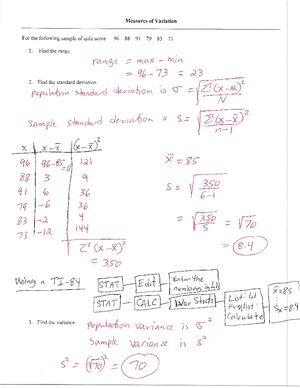 Measures of Variation
For the following sample of quiz score 96 88 91 79 83 73
1. Find the range
range = max - min
= 96 - 73 = 23
2. Find the standard deviation
Population standard deviation is σ = √(Σ(x-μ)²/N)
Sample standard deviation is s = √(Σ(x-x̄)²/n-1)
x x-x̄ (x-x̄)²
96 96-85=11 121
88 3 9
91 6 36
79 -6 36
83 -2 4
73 -12 144
Σ(x-x̄)²
= 350
x̄ = 85
s = √(350/6-1)
= √(350/5) = √70
= 8.4
Using a TI-84
STAT Edit Enter the numbers in L1
STAT CALC 1Var Stats List: L1 Freqlist: Calculate
x̄=85
:
Sx=8.4
3. Find the variance
Population variance is σ²
Sample variance is s²
s² = (√70)² = 70